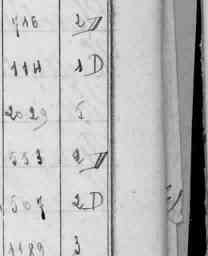 716 2 D
118 1 D
2029 5
533 2 D
507 2 D
1189 3